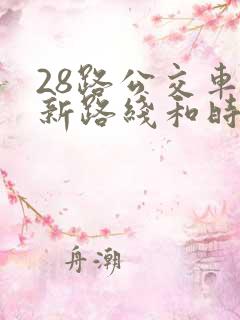 28路公交車
新路綫和時
舟潮